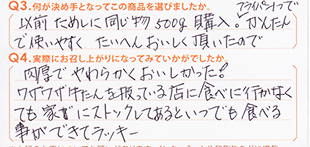 Q3.何が決め手となってこの商品を選びましたか。
フライパン1つで
以前ためしに同じ物500g購入。かんたん
で使いやすく たいへんおいしく頂いたので
Q4.実際にお召し上がりになってみていかがでしたか
肉厚でやわらかくおいしかった!
ワザワザ牛たんを扱ている店に食べに行かなく
ても家ずにストックしてあるといつでも食べる
事ができてラッキー